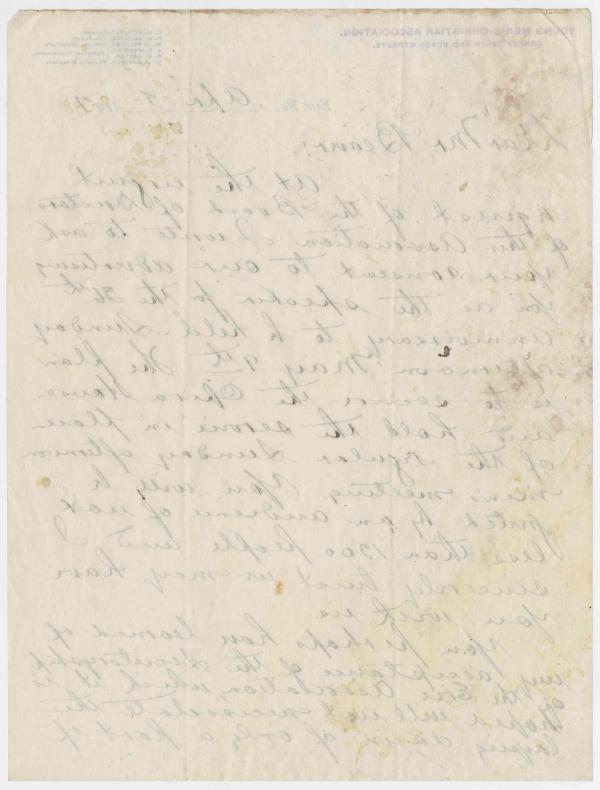 YOUNG MEN'S CHRISTIAN ASSOCIATION,
CORNER TENTH AND PEACH STREETS.
Erie, Pa. Apr. 7
Dear Mr.
At the urgent
request of the Board of Directors
of this Association I write to ask
your consent to our advertising
you as the speaker for the 36th
anniversary to be held Sunday
afternoon May 9th. The plan
is to secure the Opera House
and hold the service in place
of the regular Sunday afternoon
mens meeting. You will be
greeted by an audience of not
less than 1200 people and I
sincerely trust we may have
you with us
You perhaps have learned of
my acceptance of the Secretaryship
of the Erie Association, which it is
hoped will not necessitate the
laying down of only a part of